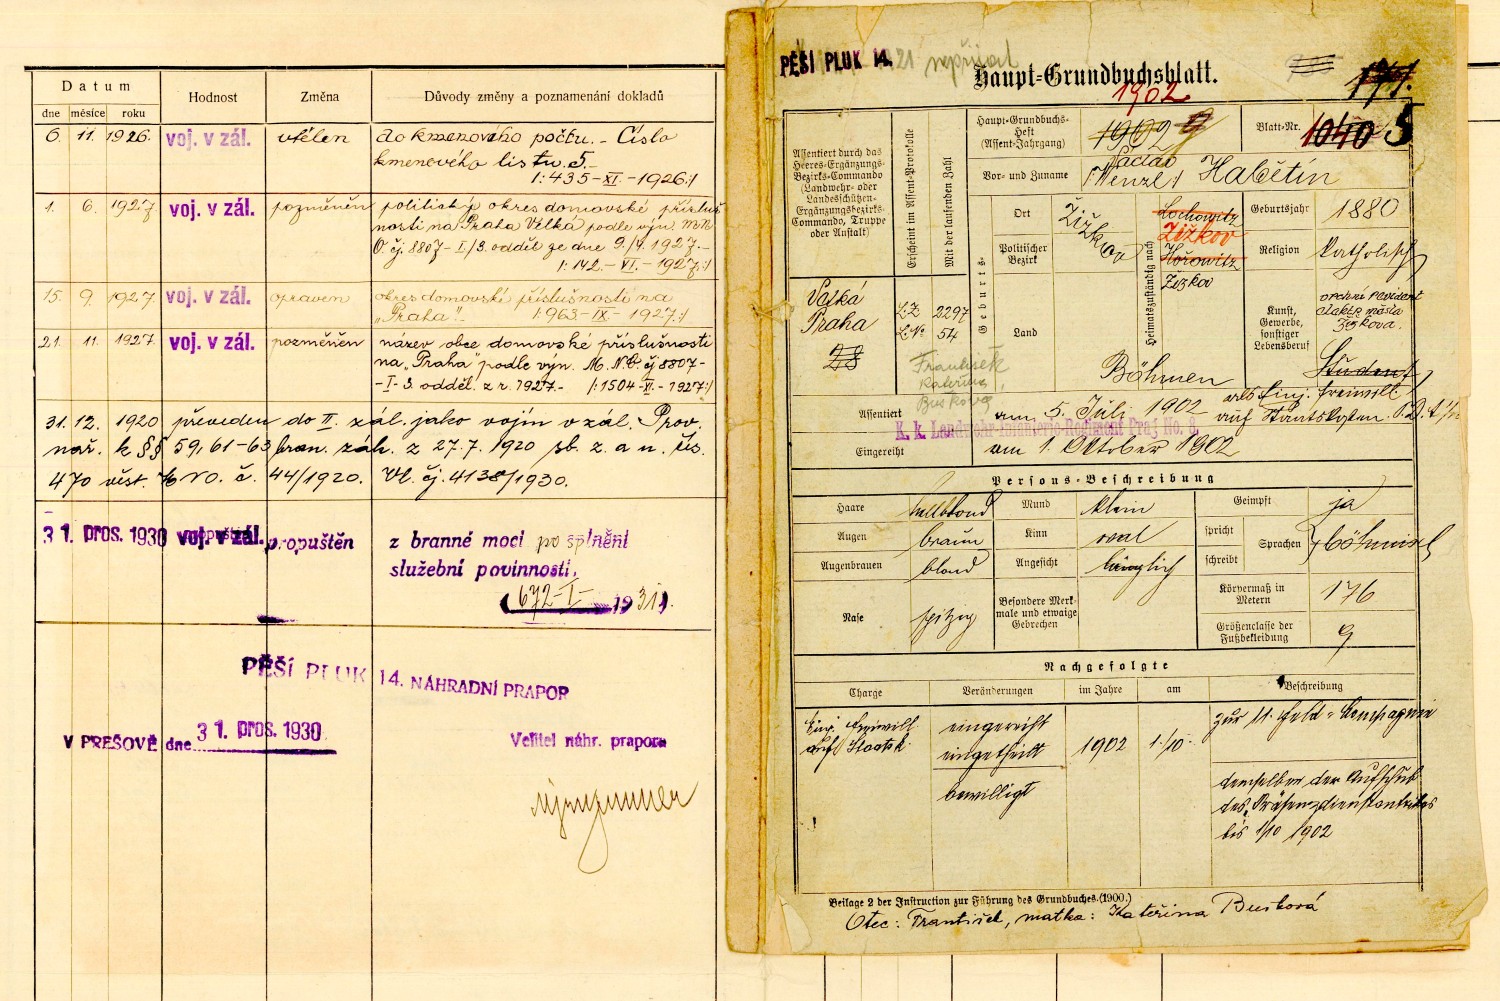 Datum
dne měsíce roku Hodnost Změna Důvody změny a poznamenání dokladů
6. 11. 1926. voj. v zál. vtělen do kmenového počtu. - Číslo
kmenového listu 5.-
/: 435 - XI. - 1926:/
1. 6. 1927 voj. v zál. pozměněn politický okres domovské přísluš
nosti na Praha Velká podle výn. M.N.
O. čj. 8807 - I/3. odděl ze dne 9./4. 1927.-
/: 142.- VI. - 1927:/
15. 9. 1927 voj. v zál. opraven okres domovské příslušnosti na
"Praha".- /: 963 - IX - 1927:/
21. 11. 1927. voj. v zál. pozměněn název obce domovské příslušnosti
na "Praha" podle výn. M.N.O. čj 8807-
- I - 3. odděl. z r. 1927.- /: 1504 - XI - 1927:/
31. 12. 1920 převeden do II. zál. jako vojín v zál. Prov.
nař. k §§ 59, 61-63 bran. zák. z 27. 7. 1920 sb. z. a n. čís.
470 věst. č. 44/1920. Vl. čj. 4138/1930.
31. pros. 1930 voj. v zál. propuštěn z branné moci po splnění
služební povinnosti.
(672 - I - 1931).
PĚŠÍ PLUK 14. NÁHRADNÍ PRAPOR
V PREŠOVĚ dne 31. pros. 1930
Velitel náhr. prapora
PĚŠÍ PLUK 14. 21 nepřísl
Haupt-Grundbuchsblatt.
171.
1902
Assentiert durch das
Heeres-Ergänzungs-
Bezirks-Commando
(Landwehr- oder
Landesschützen-
Ergänzungsbezirks-
Commando, Truppe
oder Anstalt)
Erscheint im Assent-Protokolle
Mit der laufenden Zahl
Haupt-Grundbuchs-
Heft
(Assent-Jahrgang)
1902 9
Blatt-Nr. 1040 5
Vor- und Zuname
Václav
/: Wenzl :/ Habětín
Geburts-
Ort Žižkov
Politischer
Bezirk
Land Böhmen
Heimatszuständig nach
Lochowitz
Žižkov
Hořowitz
Žižkov
Geburtsjahr 1880
Religion katholisch
Kunst,
Gewerbe,
sonstiger
Lebensberuf
Žižkova.
Student
Velká
Praha
28
L.Z. 2297
L.No 54
František
Kateřina,
Busková
Assentiert am 5. Juli 1902 als Einj. freiwill
auf Staatskosten
K. k. Landwehr-Infanterie-Regiment Prag No. 8.
Eingereiht am 1. Oktober 1902
Persons-Beschreibung
Haare hellblond
Augen braun
Augenbrauen blond
Nase spitzig
Mund klein
Kinn oval
Angesicht länglich
Besondere Merk-
male und etwaige
Gebrechen
Geimpft ja
spricht
schreibt
Sprachen böhmisch
Körpermaß in
Metern 176
Größenclasse der
Fußbekleidung 9
Nachgefolgte
Charge Veränderungen im Jahre am Beschreibung
Einj. freiwill.
auf Staatsk.
eingereiht
eingetheilt 1902 1./10. zur 11. Feld-Compagnie
bewilligt
demselben der Aufschub
des Präsenzdienstantrittes
bis 1/10 1902
Beilage 2 der Instruction zur Führung des Grundbuches. (1900.)
Otec: František, matka: Kateřina Busková